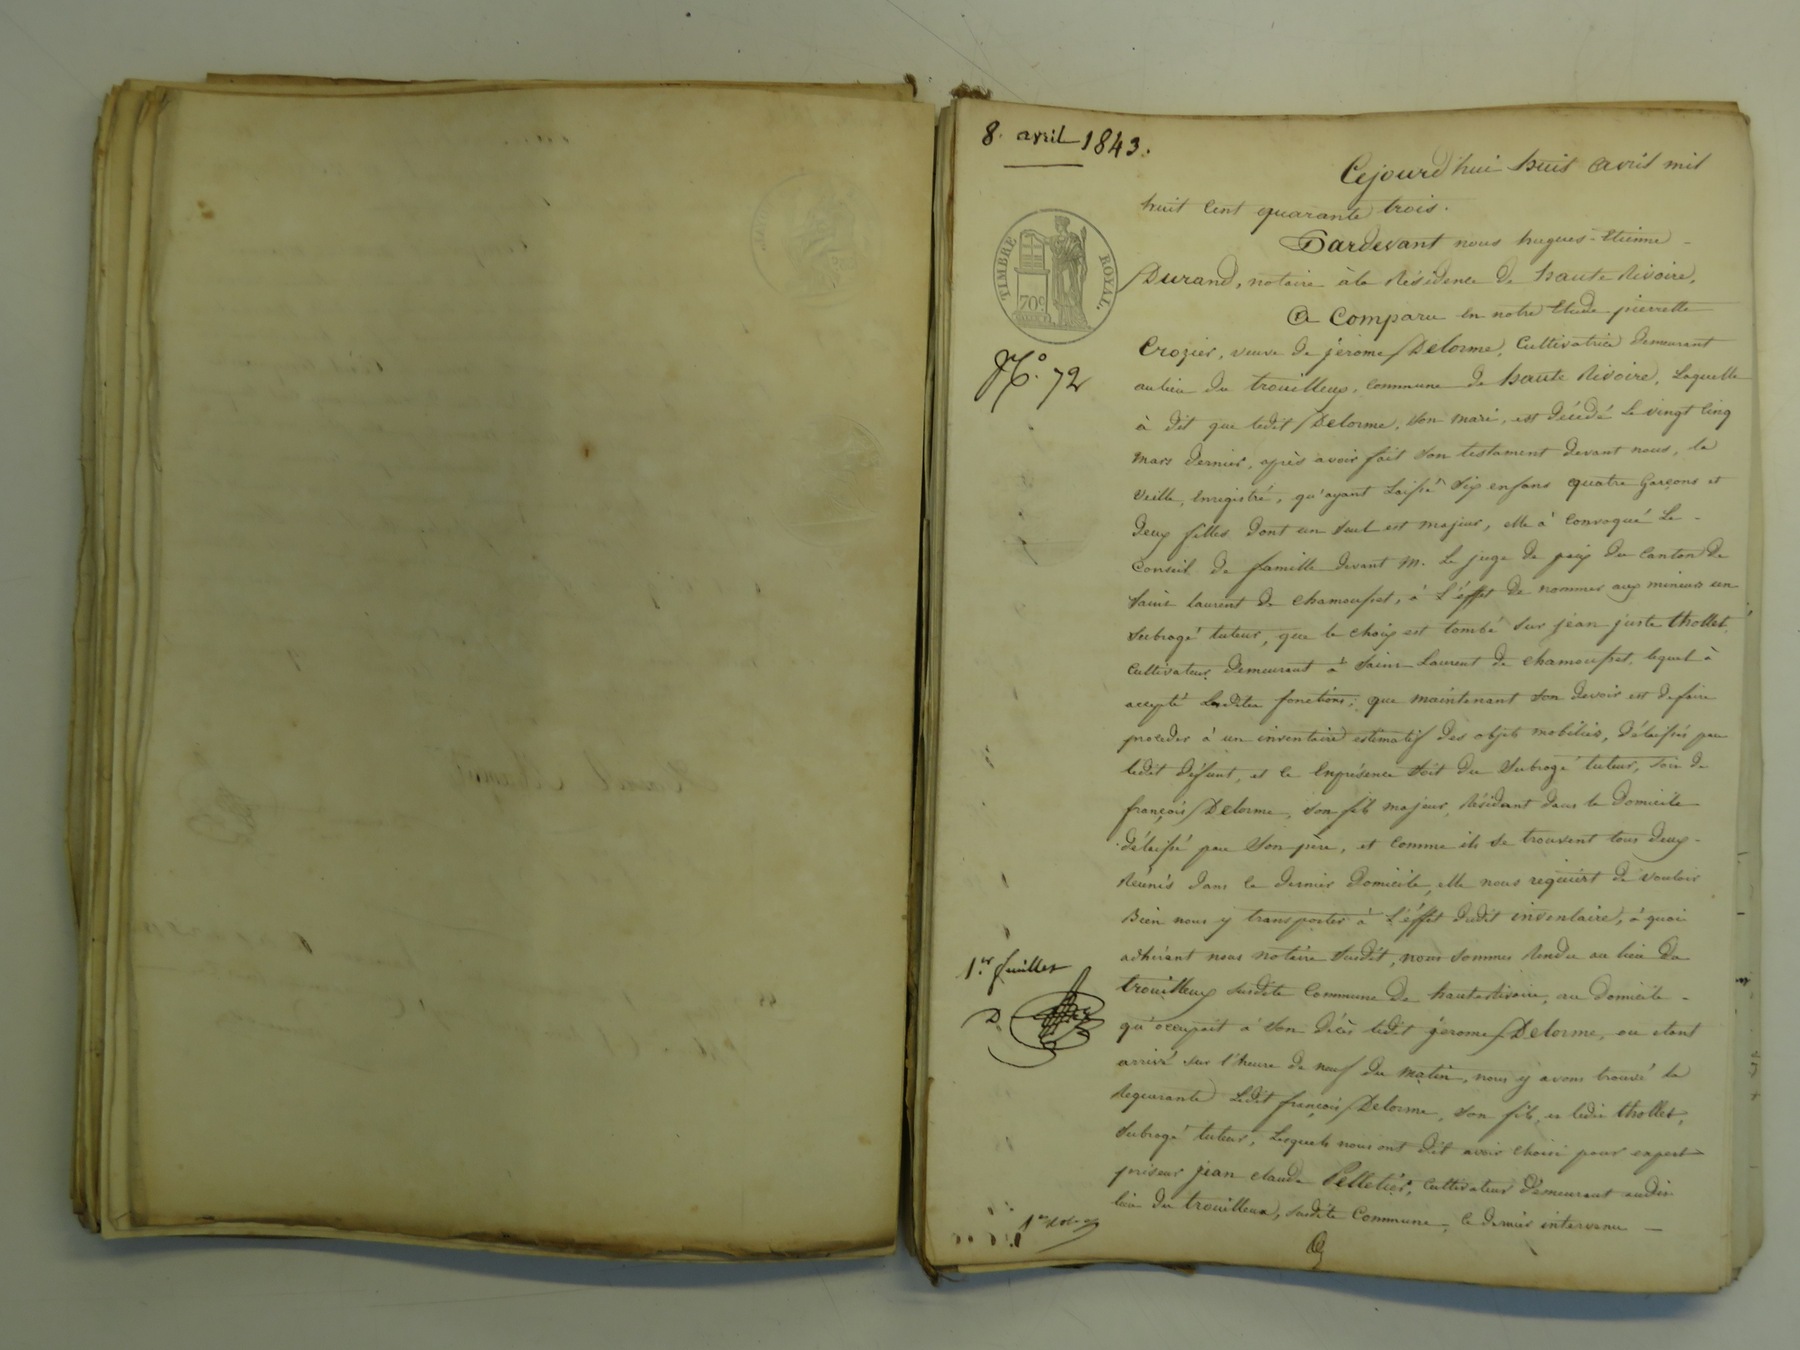 8. avril 1843.
Cejourd'hui huit avril mil
huit cent quarante trois.
Pardevant nous hugues-Etienne -
Durand, notaire à la Résidence de haute Rivoire,
TIMBRE ROYAL.
70c
A Comparu en notre Etude pierrette
N.° 72
Crozier, veuve de jérome Delorme, Cultivatrice demeurant
au lieu du trouilleux, Commune de haute Rivoire, Laquelle
à dit que ledit Delorme, son mari, est décédé le vingt cinq
mars dernier, après avoir fait son testament devant nous, la
veille, Enregistré, qu'ayant Laissé six enfans quatre garçons et
deux filles dont un seul est majeur, elle à Convoqué Le -
Conseil de famille devant M. Le juge de paix du Canton de
saint laurent de chamousset, à L'éffet de nommer aux mineurs un
subrogé tuteur, que le choix est tombé sur jean juste thollet,
Cultivateur demeurant à saint-Laurent de chamousset, lequel à
accepté Lesdites fonctions; que maintenant son devoir est de faire
proceder à un inventaire estimatif des objets mobiliers, délaissés par
ledit défunt, et ce Enprésence soit du subrogé tuteur, soit de
françois Delorme, son fils majeur, Résidant dans le Domicile
délaissé par son père, et comme ils se trouvent tous deux -
Réunis dans ce dernier Domicile, elle nous requiert de vouloir
Bien nous y transporter à L'éffet dudit inventaire, à quoi
adhérant nous notaire susdit, nous sommes Rendu au lieu du
1.er feuillet
trouilleux susdite Commune de hauterivoire, au domicile -
D.
qu'occupait à son décès ledit jérome Delorme, ou etant
arrivé sur l'heure de neuf du matin, nous y avons trouvé la
Requerante Ledit françois Delorme, son fils, et ledit thollet,
subrogé tuteur, Lesquels nous ont dit avoir choisi pour expert
priseur jean claude Pelletier, Cultivateur demeurant audit
lieu du trouilleux, susdite Commune, ce dernier intervenu -